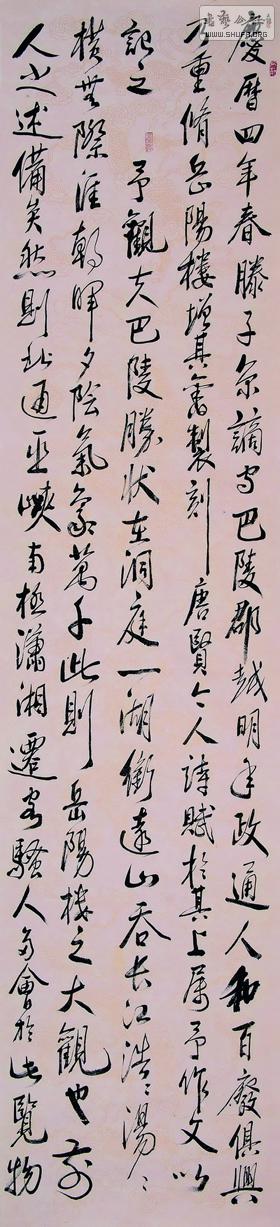 慶曆四年春滕子京謫守巴陵郡越明年政通人和百廢俱興
乃重脩岳陽樓增其舊製刻唐賢今人詩賦於其上屬予作文以
記之 予觀夫巴陵勝狀在洞庭一湖銜遠山吞長江浩〻湯〻
橫無際涯朝暉夕陰氣象萬千此則岳陽樓之大觀也前
人之述備矣然則北通巫峽南極瀟湘遷客騷人多會於此覽物